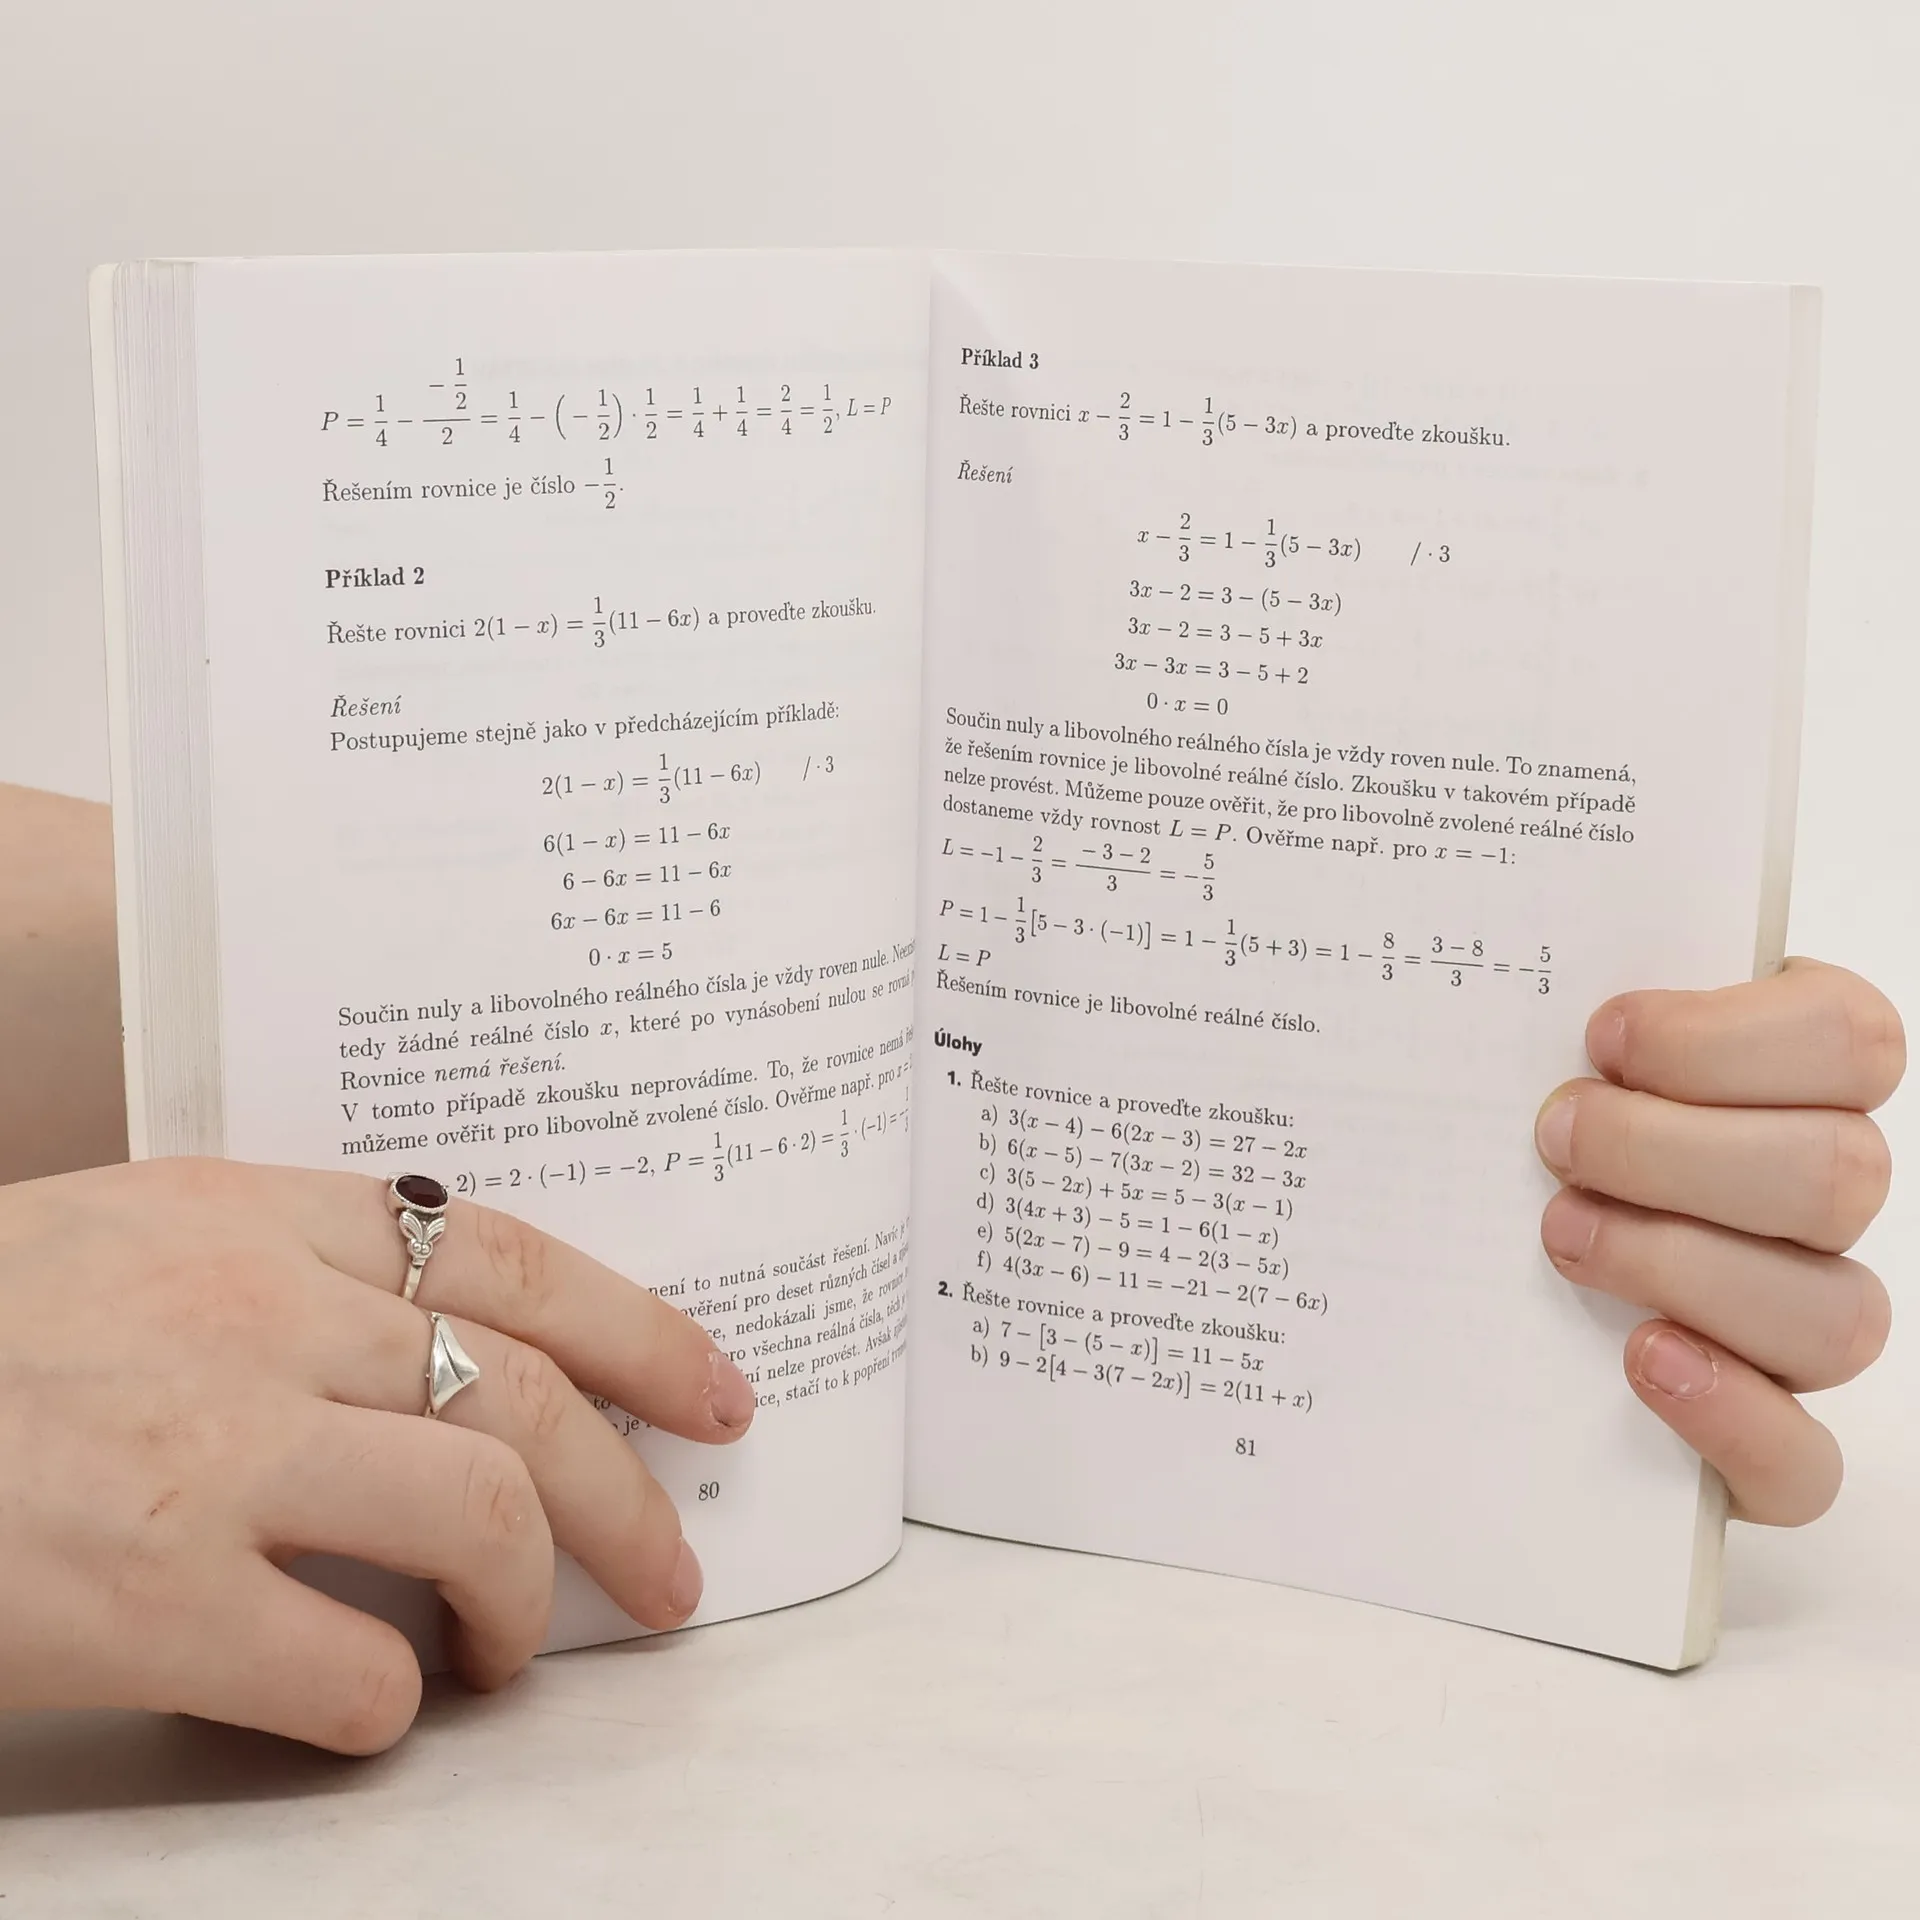 P = 1/4 − (−1/2)/2 = 1/4 − (−1/2) · 1/2 = 1/4 + 1/4 = 2/4 = 1/2, L = P
Řešením rovnice je číslo −1/2.
Příklad 2
Řešte rovnici 2(1 − x) = 1/3(11 − 6x) a proveďte zkoušku.
Řešení
Postupujeme stejně jako v předcházejícím příkladě:
2(1 − x) = 1/3(11 − 6x) / · 3
6(1 − x) = 11 − 6x
6 − 6x = 11 − 6x
6x − 6x = 11 − 6
0 · x = 5
Součin nuly a libovolného reálného čísla je vždy roven nule.
tedy žádné reálné číslo x, které po vynásobení nulou se rovná
Rovnice nemá řešení.
V tomto případě zkoušku neprovádíme. To, že rovnice nemá
můžeme ověřit pro libovolně zvolené číslo. Ověřme např. pro x =
2) = 2 · (−1) = −2, P = 1/3(11 − 6 · 2) = 1/3 · (−1) = −1/3
není to nutná součást řešení. Navíc je
ověření pro deset různých čísel a
nedokázali jsme, že rovnice
všechna reálná čísla, těch
ní nelze provést. Avšak
stačí to k popření
to
je
80
Příklad 3
Řešte rovnici x − 2/3 = 1 − 1/3(5 − 3x) a proveďte zkoušku.
Řešení
x − 2/3 = 1 − 1/3(5 − 3x) / · 3
3x − 2 = 3 − (5 − 3x)
3x − 2 = 3 − 5 + 3x
3x − 3x = 3 − 5 + 2
0 · x = 0
Součin nuly a libovolného reálného čísla je vždy roven nule. To znamená,
že řešením rovnice je libovolné reálné číslo. Zkoušku v takovém případě
nelze provést. Můžeme pouze ověřit, že pro libovolně zvolené reálné číslo
dostaneme vždy rovnost L = P. Ověřme např. pro x = −1:
L = −1 − 2/3 = (−3 − 2)/3 = −5/3
P = 1 − 1/3[5 − 3 · (−1)] = 1 − 1/3(5 + 3) = 1 − 8/3 = (3 − 8)/3 = −5/3
L = P
Řešením rovnice je libovolné reálné číslo.
Úlohy
1. Řešte rovnice a proveďte zkoušku:
a) 3(x − 4) − 6(2x − 3) = 27 − 2x
b) 6(x − 5) − 7(3x − 2) = 32 − 3x
c) 3(5 − 2x) + 5x = 5 − 3(x − 1)
d) 3(4x + 3) − 5 = 1 − 6(1 − x)
e) 5(2x − 7) − 9 = 4 − 2(3 − 5x)
f) 4(3x − 6) − 11 = −21 − 2(7 − 6x)
2. Řešte rovnice a proveďte zkoušku:
a) 7 − [3 − (5 − x)] = 11 − 5x
b) 9 − 2[4 − 3(7 − 2x)] = 2(11 + x)
81